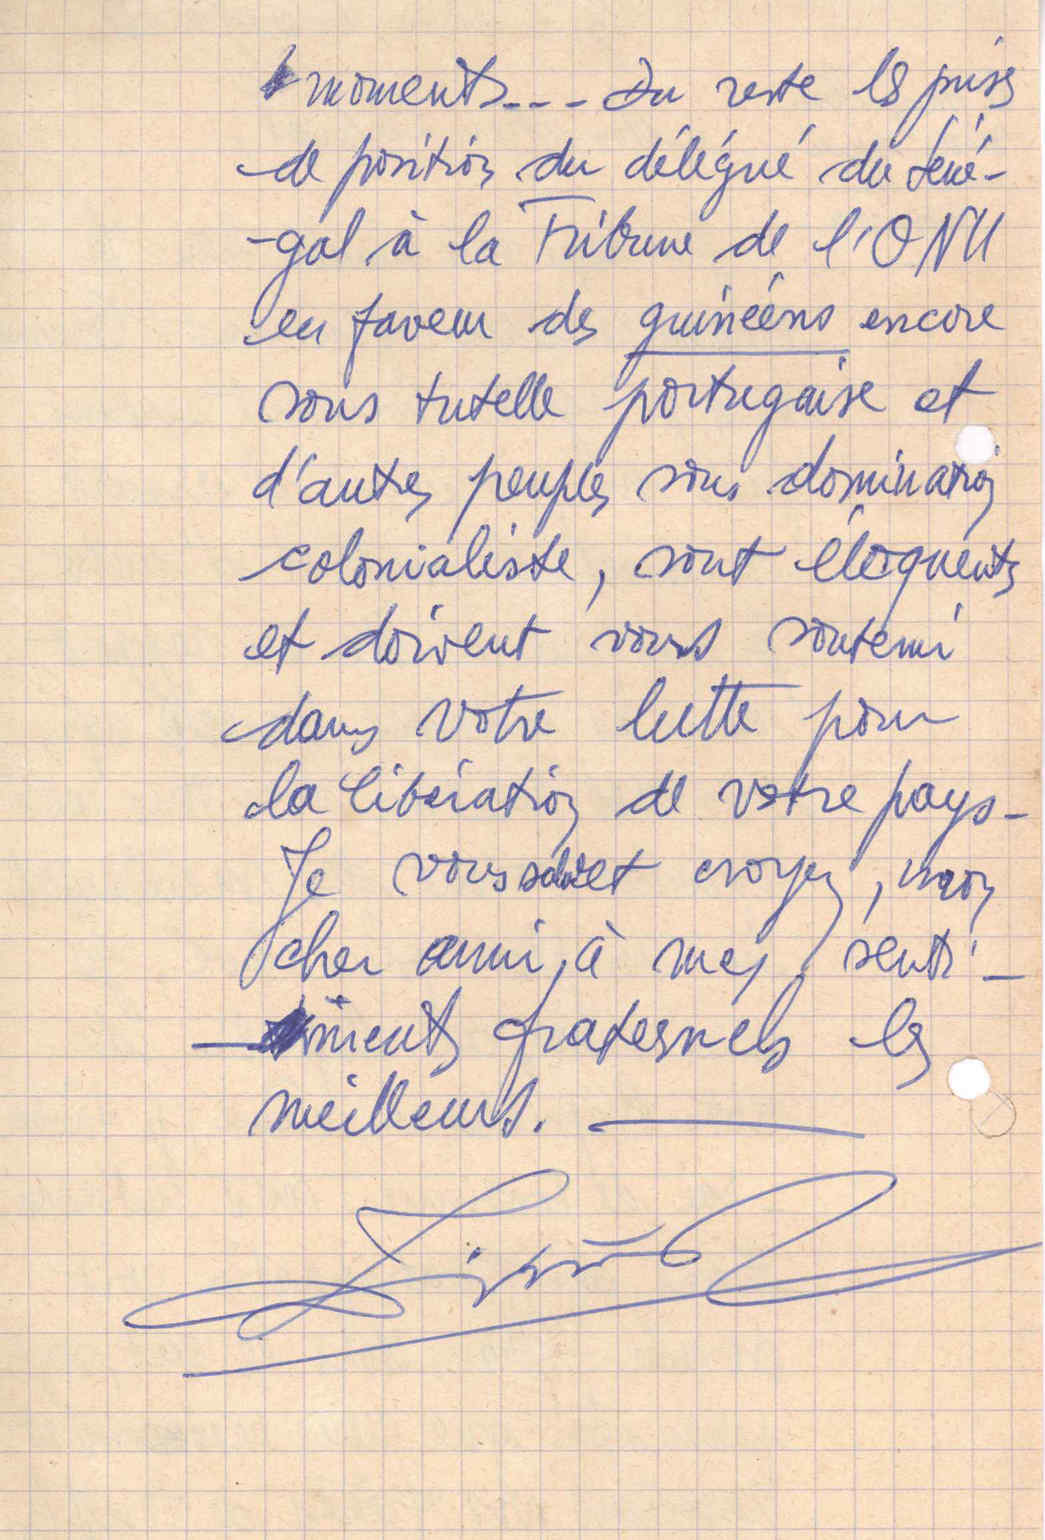 moments... Du reste les prises
de position du délégué du Séné-
-gal à la Tribune de l'ONU
en faveur des guinéens encore
sous tutelle portugaise et
d'autres peuples sous domination
colonialiste, sont éloquents
et doivent vous soutenir
dans votre lutte pour
la libération de votre pays-
Je vous et croyez, mon
cher ami, à mes senti-
-ments fraternels les
meilleurs.